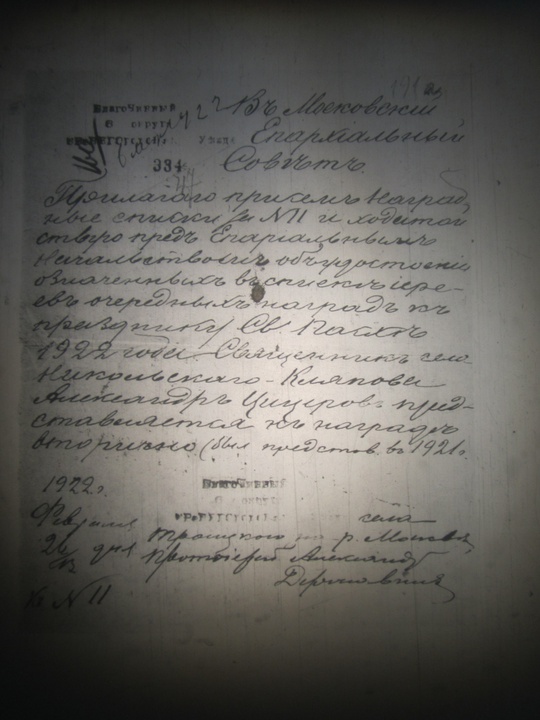 Благочинный
6 округа
Въ Московскій
Епархіальный
334
Совѣтъ
Прилагаю при семъ наград
ные списки за № 11 и ходатай
ствую предъ Епархіальнымъ
Начальствомъ объ удостоеніи
означенныхъ въ спискѣ іере-
евъ очередныхъ наградъ къ
празднику Св. Пасхи
1922 года. Священникъ села
Никольскаго-
Александръ предъ-
ставляется къ наградѣ
вторично (был представ. въ 1921 г.
1922 г.
Благочинный
6 округа
Февраля
села
24 дня
Троицкого на р. Москвѣ
протоіерей Александр
№ 11